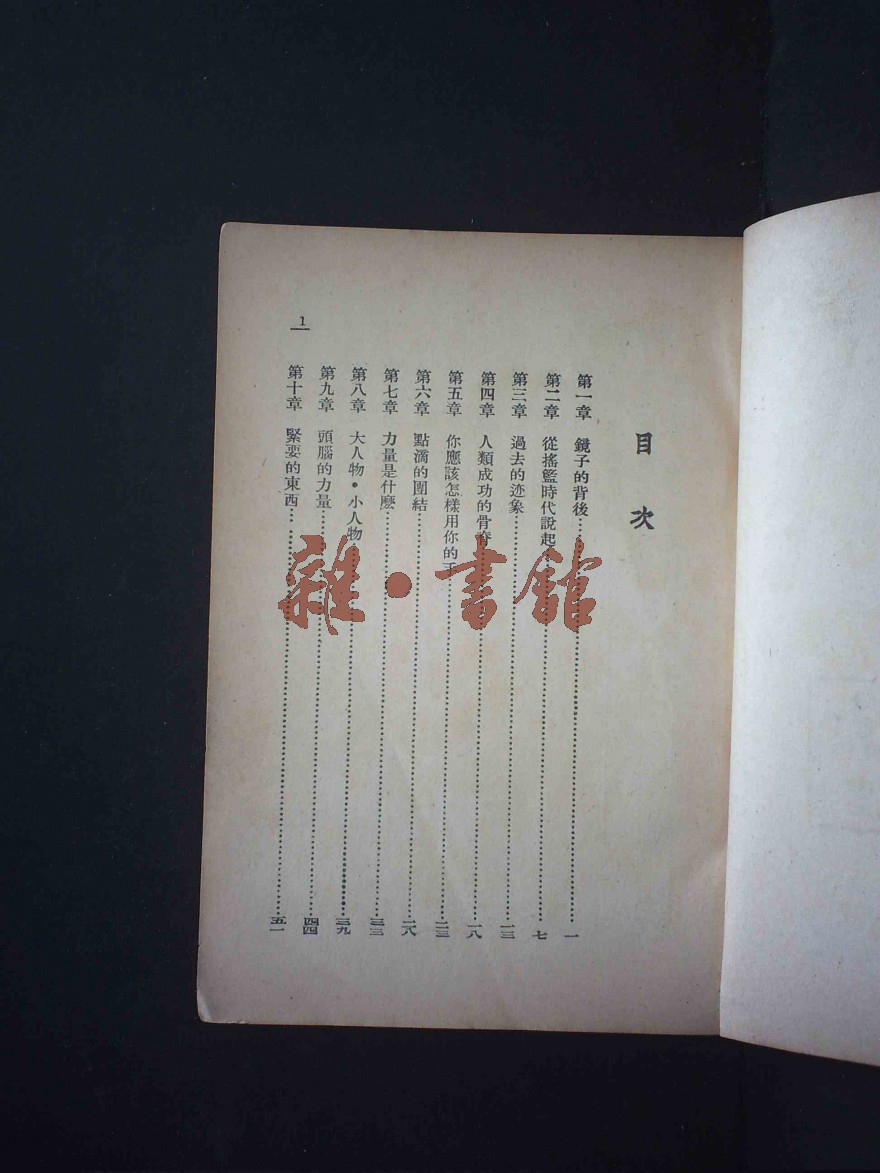 目次
第一章 鏡子的背後……一
第二章 從搖籃時代說起……七
第三章 過去的迹象……一三
第四章 人類成功的骨脊……一八
第五章 你應該怎樣用你的手……二三
第六章 點滴的團結……二八
第七章 力量是什麽……三三
第八章 大人物•小人物……三九
第九章 頭腦的力量……四四
第十章 緊要的東西……五一
1
雜•書館